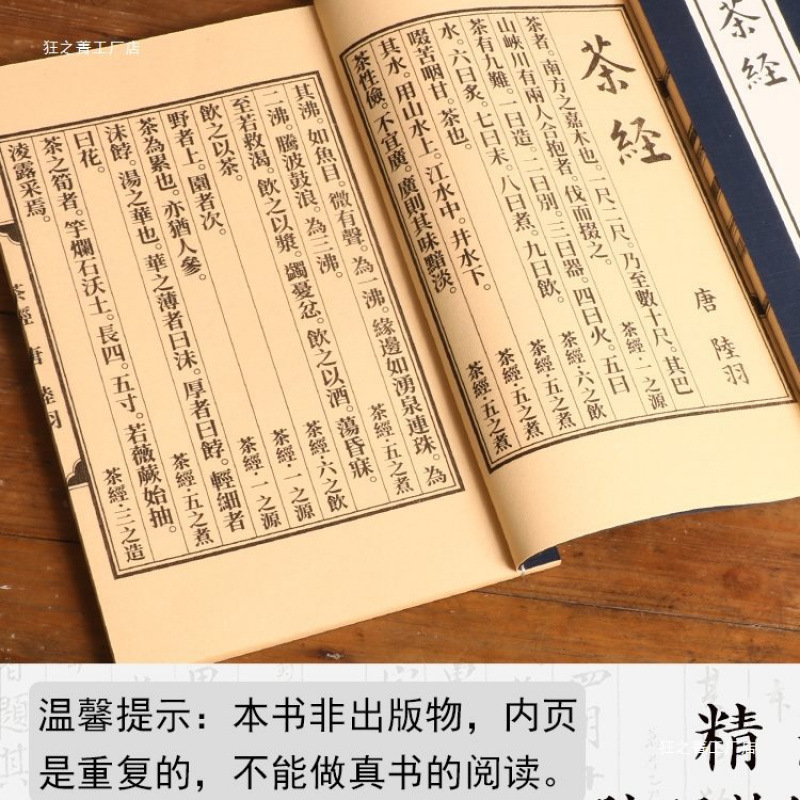 狂之菁工厂店
茶经
茶经
唐 陸羽
茶者。南方之嘉木也。一尺。二尺。乃至數十尺。其巴
山峽川有兩人合抱者。伐而掇之。茶經·一之源
茶有九難。一曰造。二曰別。三曰器。四曰火。五曰
水。六曰炙。七曰末。八曰煮。九曰飲。茶經·六之飲
啜苦咽甘。茶也。茶經·五之煮
其水。用山水上。江水中。井水下。茶經·五之煮
茶性儉。不宜廣。廣則其味黯淡。茶經·五之煮
其沸。如魚目。微有聲。為一沸。緣邊如湧泉連珠。為
二沸。騰波鼓浪。為三沸。茶經·五之煮
至若救渴。飲之以漿。蠲憂忿。飲之以酒。蕩昏寐。
飲之以茶。茶經·六之飲
野者上。園者次。茶經·一之源
茶為累也。亦猶人參。茶經·一之源
沫餑。湯之華也。華之薄者曰沫。厚者曰餑。輕細者
曰花。茶經·五之煮
茶之筍者。竽爛石沃土。長四。五寸。若薇蕨始抽。
淩露采焉。茶經·三之造
茶經 唐 陸羽
温馨提示：本书非出版物，内页
是重复的，不能做真书的阅读。
精
狂之菁工厂店